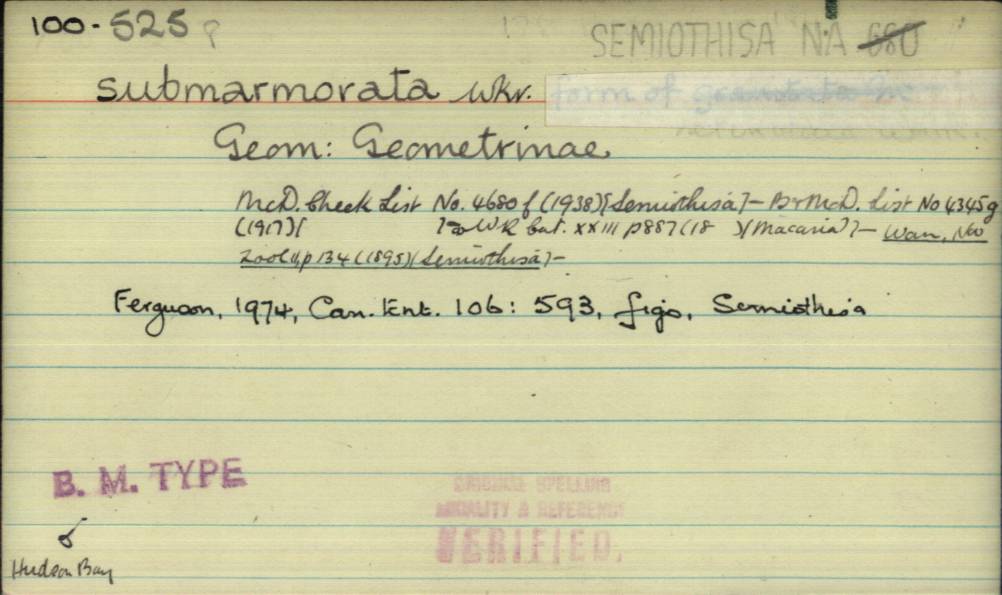 100-525 SEMIOTHISA NA 680
submarmorata Wkr. form of
Geom: Geometrinae
McD. Check List No. 4680f (1938)[Semiothisa] - B & McD. List No 4345g
(1917)[ ] Wk Cat. XXIII p887 (18 )[Macaria] - Warr, Nov
Zool II, p134 (1895)[Semiothisa] -
Ferguson, 1974, Can. Ent. 106: 593, figs, Semiothisa
B. M. TYPE
ORIGINAL SPELLING
LOCALITY & REFERENCE
VERIFIED.
♂
Hudson Bay